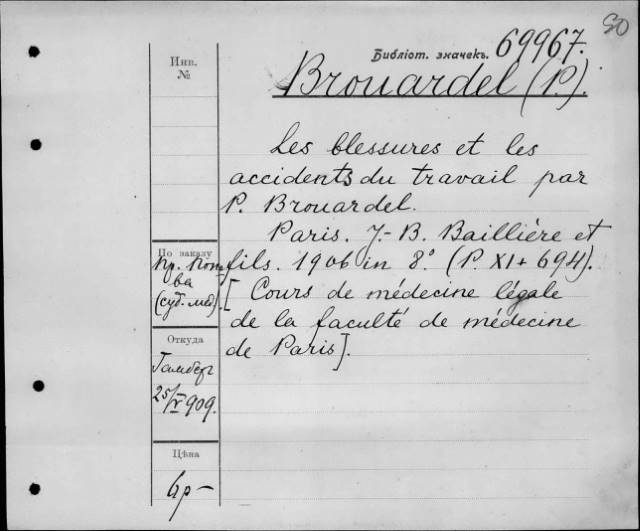 50
Библіот. значекъ. 69967.
Инв.
№
Brouardel (P.).
Les blessures et les
accidents du travail par
P. Brouardel.
Paris. J.-B. Baillière et
fils. 1906 in 8.° (P. XI + 694).
[Cours de médecine légale
de la faculté de médecine
de Paris].
По заказу
пр.
ва
(суд. мед.)
Откуда
Гамбер
25/V 909.
Цѣна
р —